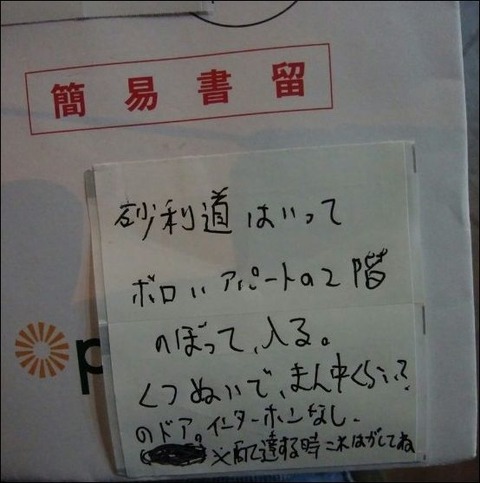 簡易書留
砂利道はいって
ボロいアパートの2階
のぼって、入る。
くつぬいで、まん中くらい?
のドア。インターホンなし。
※配達する時これはがしてね
op